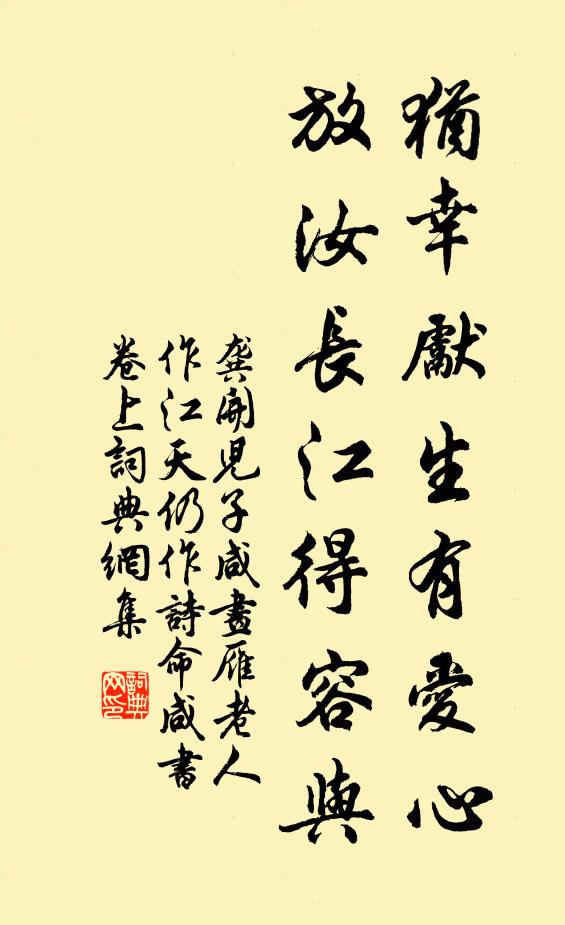 猶幸獻生有愛心
放汝長江得容與
龔開兒子咸畫雁老人
作江天仍作詩命咸書
卷上詞典網集
詞典網印